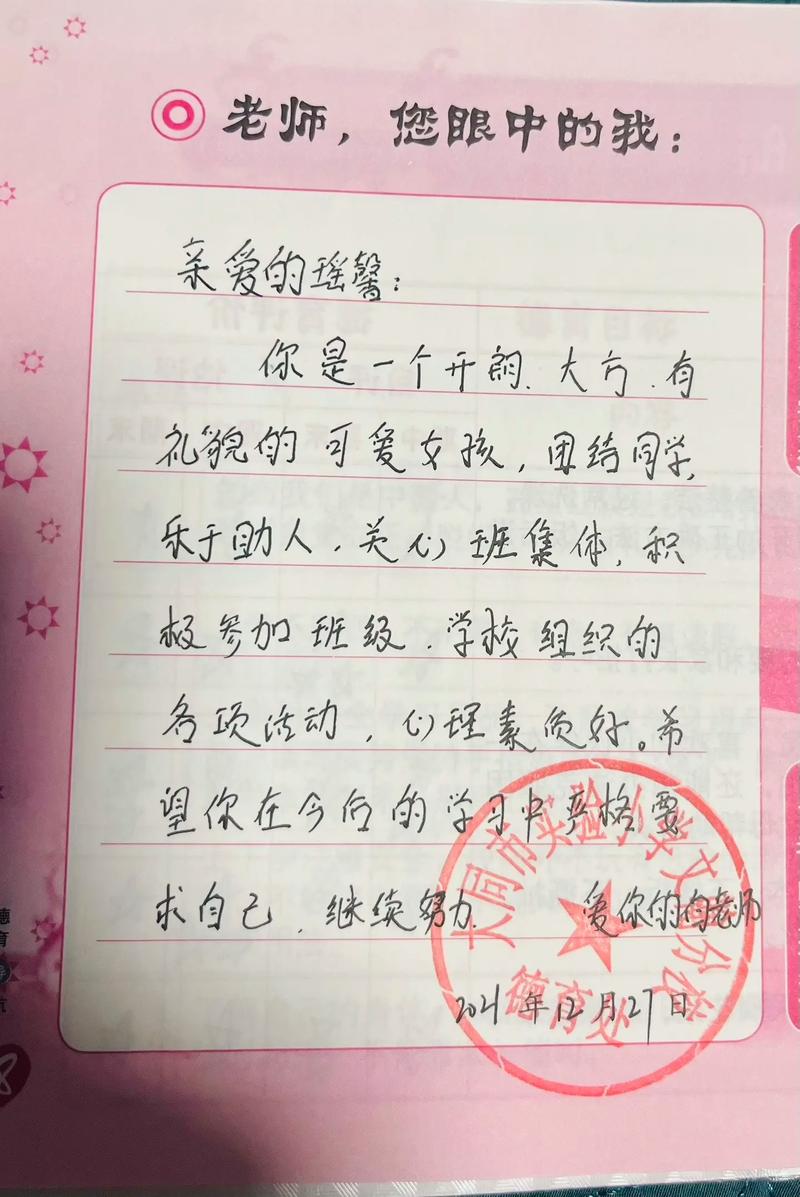 老师，您眼中的我：
亲爱的瑶馨：
你是一个开朗、大方、有
礼貌的可爱女孩，团结同学，
乐于助人，关心班集体，积
极参加班级、学校组织的
各项活动，心理素质好。希
望你在今后的学习中严格要
求自己，继续努力。
爱你的向老师
2021年12月27日
大同市实验小学文瀛分校
德育处